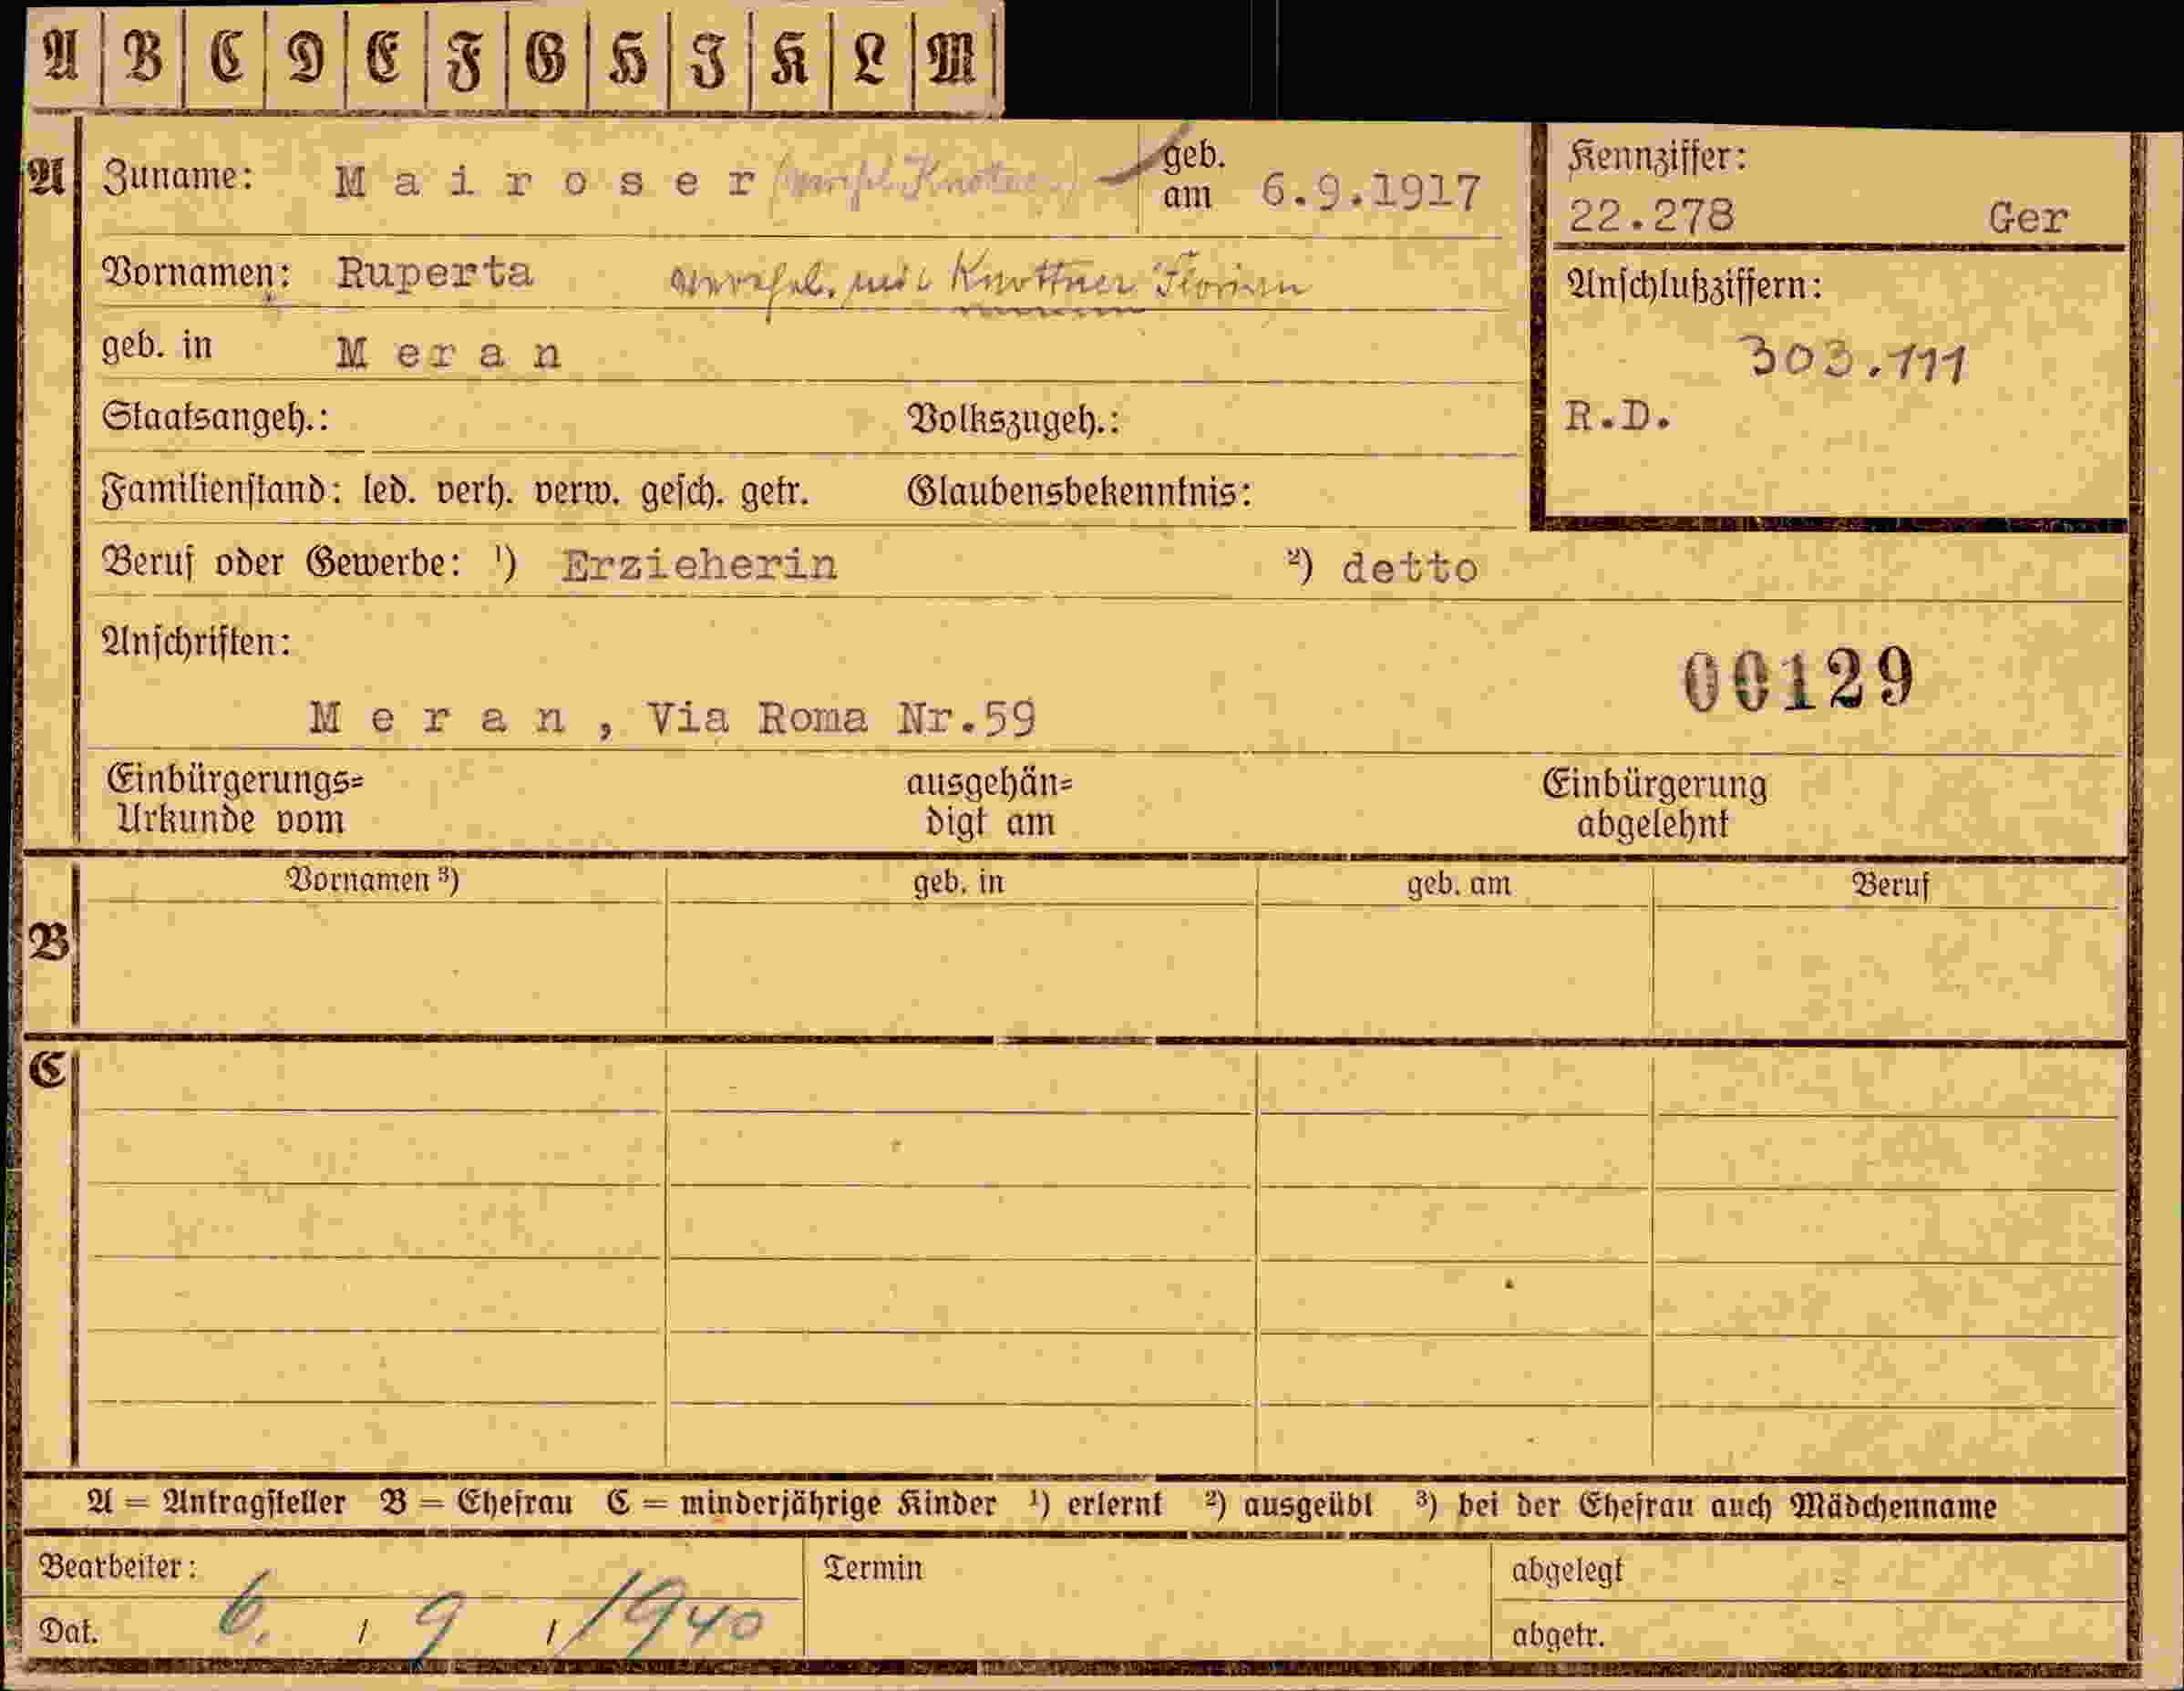 A B C D E F G H I K L M
A Zuname: Mairoser geb. am 6.9.1917
Kennziffer:
22.278 Ger
Vornamen: Ruperta verehel. mit Knottner Florian
Anschlußziffern:
303.111
R.D.
geb. in Meran
Staatsangeh.: Volkszugeh.:
Familienstand: led. verh. verw. gesch. getr. Glaubensbekenntnis:
Beruf oder Gewerbe: ¹) Erzieherin ²) detto
Anschriften:
00129
Meran, Via Roma Nr.59
Einbürgerungs= ausgehän= Einbürgerung
Urkunde vom digt am abgelehnt
B Vornamen ³) geb. in geb. am Beruf
C
A = Antragsteller B = Ehefrau C = minderjährige Kinder ¹) erlernt ²) ausgeübt ³) bei der Ehefrau auch Mädchenname
Bearbeiter: Termin abgelegt
Dat. 6. / 9 / 1940 abgetr.